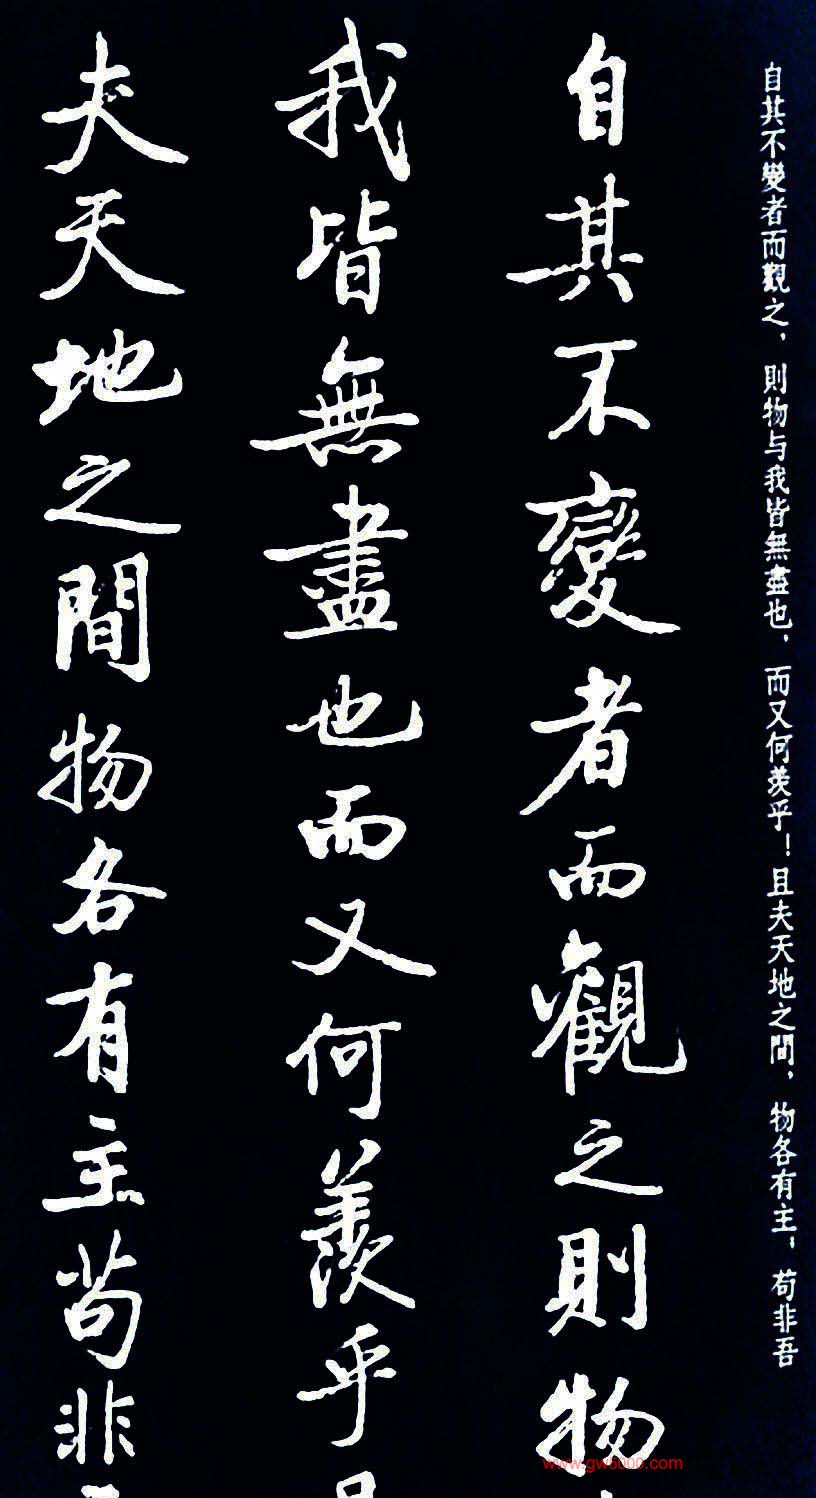 自其不變者而觀之，則物与我皆無盡也，而又何羨乎！且夫天地之間，物各有主，苟非吾
自其不變者而觀之則物
我皆無盡也而又何羨乎
夫天地之間物各有主苟非
www.gw8000.com